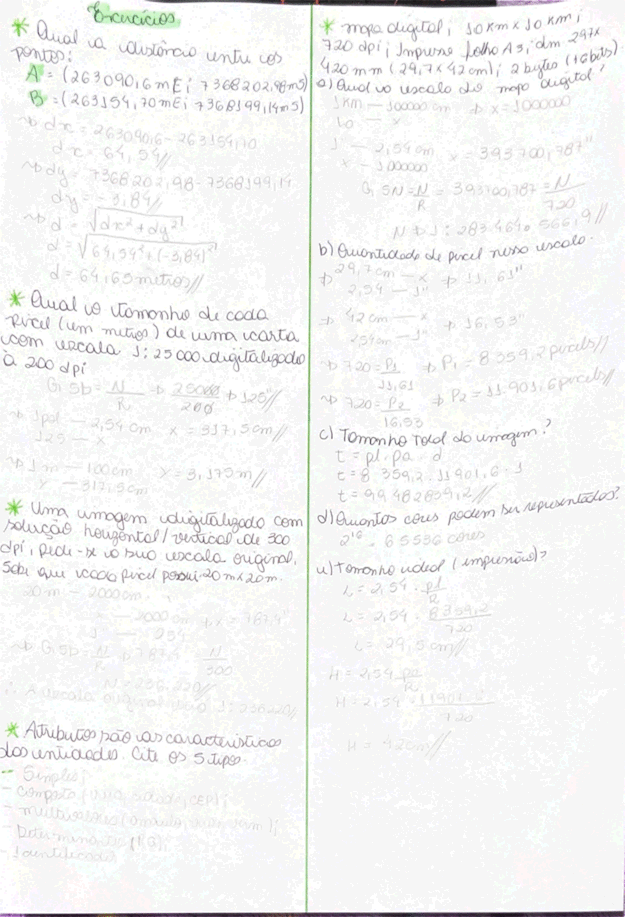 Exercícios
* Qual a distância entre os
pontos:
A = (263090,6mE; 7368202,98mS)
B = (263154,70mE; 7368199,14mS)
dx = 263090,6 - 263154,70
dx = 64,54//
dy = 7368202,98 - 7368199,14
dy = -3,84//
d = √dx² + dy²
d = √64,54² + (-3,84)²
d = 64,65 metros//
* Qual o tamanho de cada
pixel (em metros) de uma carta
com escala 1:25000 digitalizada
à 200 dpi
GSD = N/R → 25000/200 → 125"//
→ 1pol — 2,54 cm x = 317,5cm//
125 — x
→ 1m — 100cm y = 3,175m//
y — 317,5cm
* Uma imagem digitalizada com
solução horizontal/vertical de 300
dpi, pede-se a sua escala original,
Sabe que cada pixel possui 20m x 20m.
20m - 2000cm
x — 2000cm → x = 787,4"
1 — 2,54
→ GSD = N/R → 787,4 = N/300
N = 236.220//
∴ A escala original 1:236220//
* Atributos são as características
das entidades. Cite os 5 tipos.
- Simples;
- composto (rua, cidade, CEP);
- Determinante
- Identificador
* mapa digital; 10km x 10km;
720 dpi; Imprime folho A3, dim 297x
420mm (29,7 x 42cm); 2 bytes (16bits).
a) Qual a escala do mapa digital?
1km — 100000 cm → x = 1000000
10 — x
1 — 2,54cm x = 393700,787"
x — 1000000
GSN = N/R = 393700,787 = N/720
N → 1:283.464.566,9//
b) Quantidade de pixel nessa escala.
→ 29,7cm — x → 11,61"
2,54 — 1"
→ 42cm — x → 16,53"
2,54cm — 1"
→ 720 = P1/11,61 → P1 = 8359,2 pixels//
→ 720 = P2/16,53 → P2 = 11.901,6 pixels//
c) Tamanho Total da imagem?
t = pl . pa . d
t = 8.359,2 . 11901,6 . 1
t = 99.482.839,2//
d) Quantas cores podem ser representadas?
2¹⁶ = 65536 cores
e) Tamanho ideal (impressão)?
L = 2,54 . pl/R
L = 2,54 . 8359,2/720
L = 29,5cm//
H = 2,54 pa/R
H = 2,54 . 11901,6/720
H = 42cm//